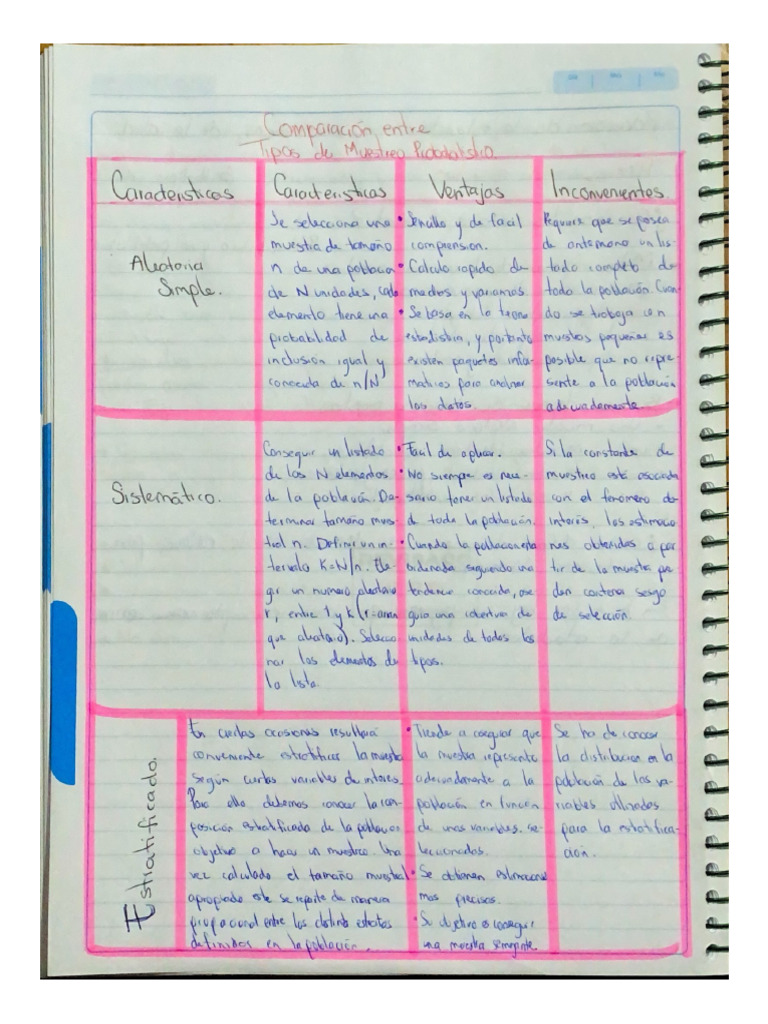 Comparación entre
Tipos de Muestreo Probabilistico.
Caracteristicas
Caracteristicas
Ventajas
Inconvenientes
Aleatoria
Simple.
Se selecciona una
muestra de tamaño
n de una poblacion
de N unidades, cada
elemento tiene una
probabilidad de
inclusión igual y
conocida de n/N
• Sencillo y de facil
comprension.
• Calculo rapido de
medias y varianzas
• Se basa en la teoria
estadistica, y por tanto
existen paquetes infor-
maticos para analizar
los datos.
Requiere que se posea
de antemano un lis-
tado completo de
toda la población Cuan
do se trabaja con
muestras pequeñas es
posible que no repre-
sente a la población
adecuadamente.
Sistemático.
Conseguir un listado
de los N elementos
de la población. De-
terminar tamaño mues
tral n. Definir un in-
tervalo K=N/n. Ele-
gir un numero aleatorio
r, entre 1 y k (r=arran
que aleatorio). Seleccio
nar los elementos de
la lista.
• Facil de aplicar.
• No siempre es nece-
sario tener un listado
de toda la población.
• Cuando la poblacion esta
ordenada siguiendo una
tendencia conocida, ase
gura una cobertura de
unidades de todos los
tipos.
Si la constante de
muestreo está asociada
con el fenomeno de
interés, las estimacio
nes obtenidas a par
tir de la muestra pue
den contener sesgo
de selección.
Estratificado.
En ciertas ocasiones resultará
conveniente estratificar la muestra
según ciertas variables de interes.
Para ello debemos conocer la com-
posición estratificada de la poblacion
objetivo a hacer un muestreo. Una
vez calculado el tamaño muestral
apropiado este se reparte de manera
propocional entre los distintos estratos
definidos en la población.
• Tiende a asegurar que
la muestra represente
adecuadamente a la
población en función
de unas variables. se-
leccionadas.
• Se obtienen estimaciones
mas precisas.
• Su objetivo es conseguir
una muestra semejante
Se ha de conocer
la distribucion en la
población de las va-
riables utilizadas
para la estratific-
ación.